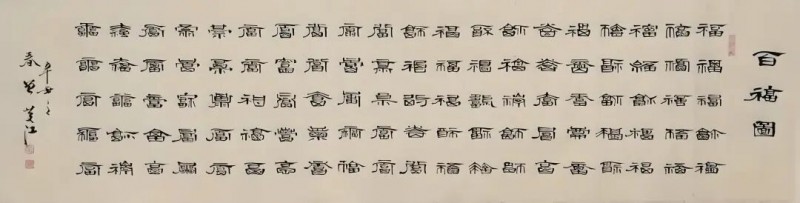 百福圖
福福福福福
福福福福福
福福福福福
福福福福福
福福福福福
福福福福福
福福福福福
福福福福福
福福福福福
福福福福福
福福福福福
福福福福福
福福福福福
福福福福福
福福福福福
福福福福福
福福福福福
福福福福福
福福福福福
福福福福福
辛丑之
春江